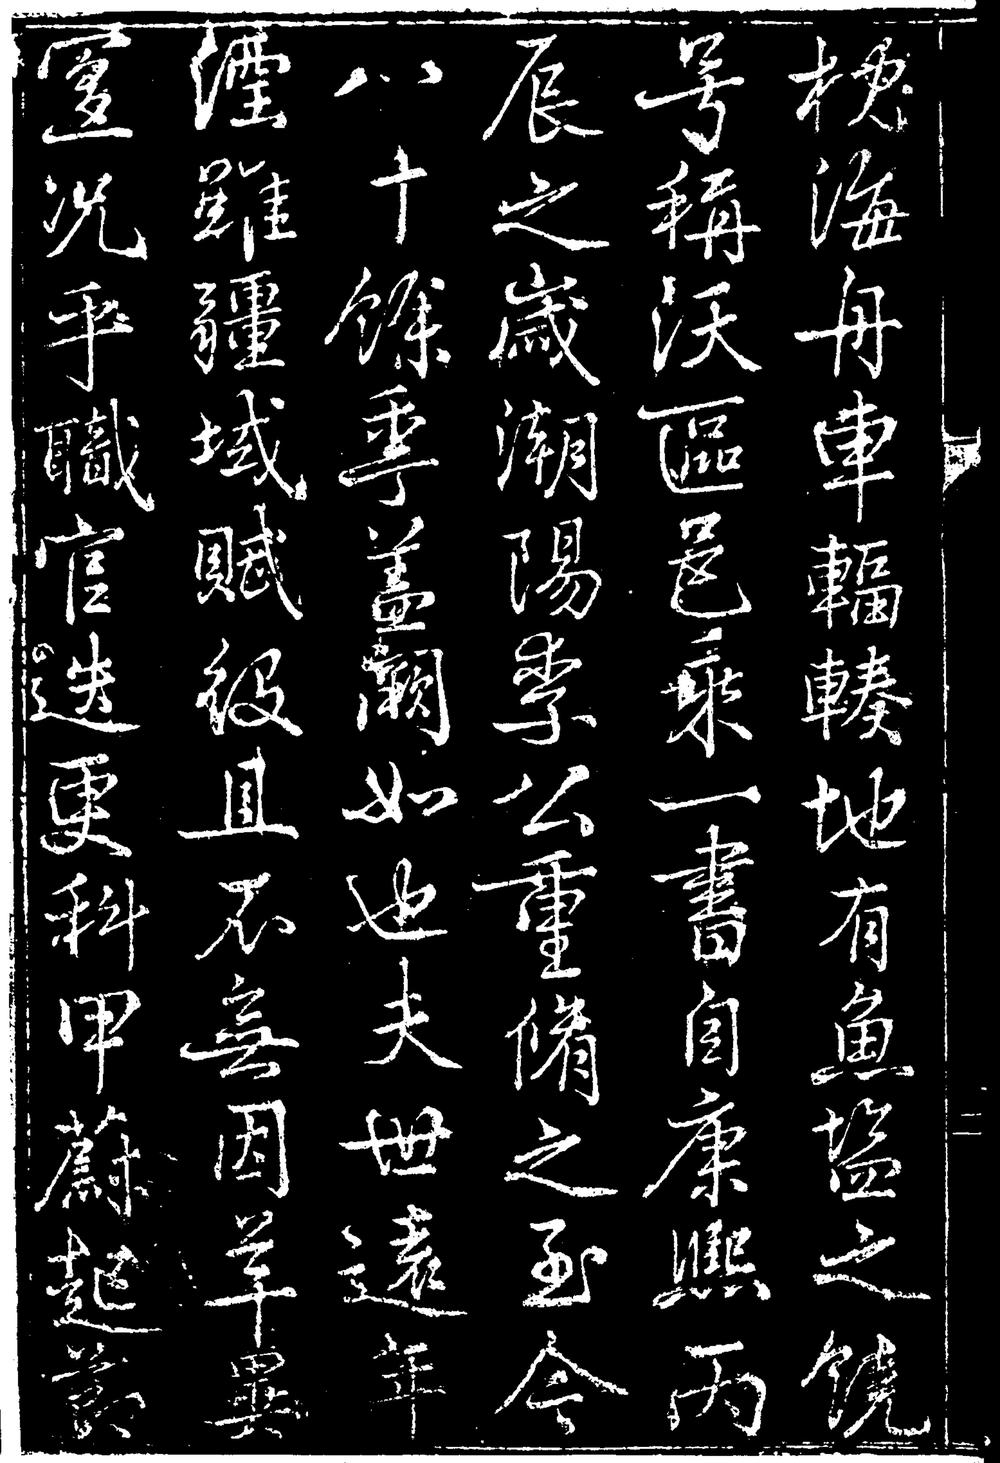 枕海舟車輻輳地有魚塩之饒
号稱沃區邑乘一書自康熙丙
辰之歲潮陽李公重脩之至今
八十餘年盖闕如也夫世遠年
湮雖疆域賦役且不無因革異
置况乎職官迭更科甲蔚起